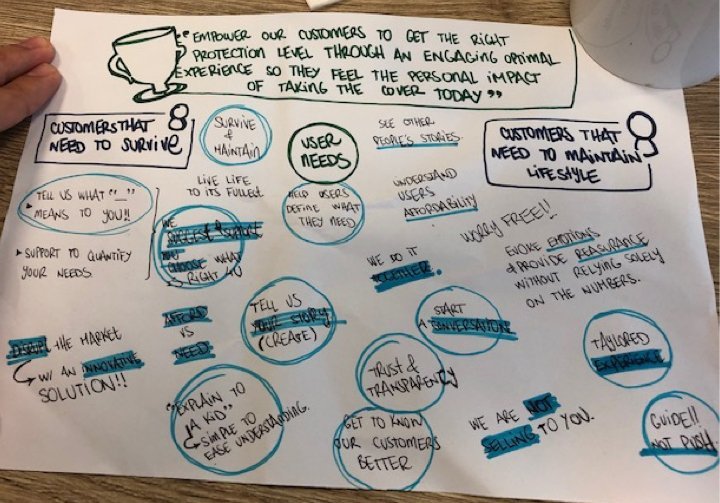 "EMPOWER OUR CUSTOMERS TO GET THE RIGHT
PROTECTION LEVEL THROUGH AN ENGAGING OPTIMAL
EXPERIENCE SO THEY FEEL THE PERSONAL IMPACT
OF TAKING THE COVER TODAY"
CUSTOMERS THAT
NEED TO SURVIVE
SURVIVE
&
MAINTAIN
USER
NEEDS
SEE OTHER
PEOPLE'S STORIES.
CUSTOMERS THAT
NEED TO MAINTAIN
LIFESTYLE
TELL US WHAT "__"
MEANS TO YOU!!
SUPPORT TO QUANTIFY
YOUR NEEDS
LIVE LIFE
TO ITS FULLEST
WE
SUGGEST &
YOU
CHOOSE WHAT
IS RIGHT 4U
HELP USERS
DEFINE WHAT
THEY NEED
UNDERSTAND
USERS
AFFORDABILITY
WORRY FREE!!
WE DO IT
TOGETHER.
EVOKE EMOTIONS
& PROVIDE REASURANCE
WITHOUT RELYING SOLELY
ON THE NUMBERS.
DISRUPT THE MARKET
W/ AN INNOVATIVE
SOLUTION!!
AFFORD
VS
NEED
TELL US
YOUR STORY
(CREATE)
START
A CONVERSATION
TRUST &
TRANSPARENCY
TAYLORED
EXPERIENCE
"EXPLAIN TO
A KID"
SIMPLE TO
EASE UNDERSTANDING.
GET TO KNOW
OUR CUSTOMERS
BETTER
WE ARE NOT
SELLING TO YOU.
GUIDE!!
NOT PUSH